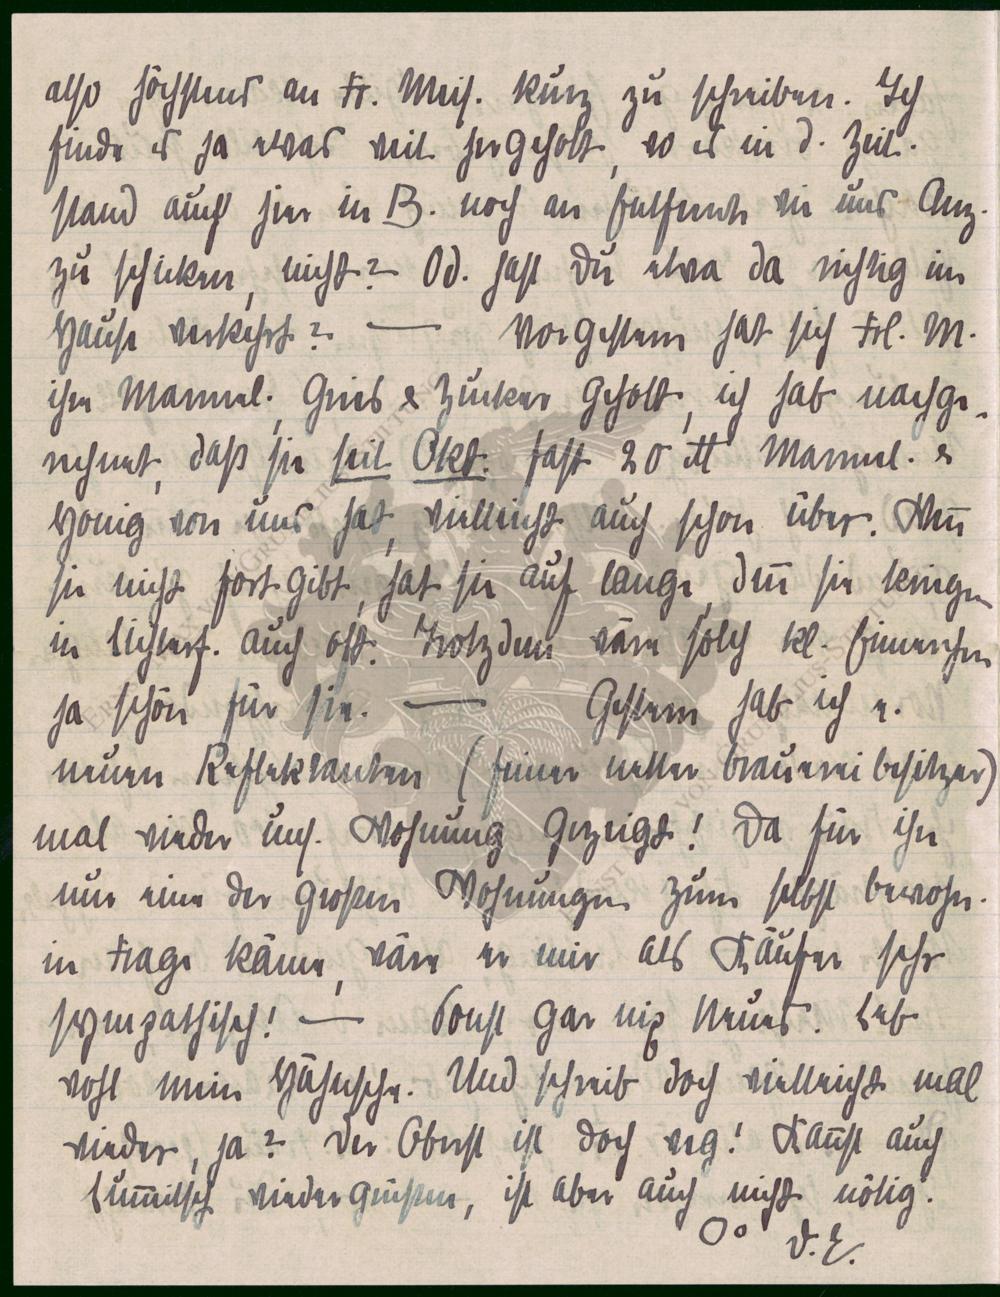 also höchstens an Fr. Meis. kurz zu schreiben. Ich
finde es ja etwas weit hergeholt, wo es in d. Zeit.
stand auch hier in B. noch an wie uns Anz.
zu schicken, nicht? Od. hast Du etwa da richtig im
Hause verkehrt? — Vorgestern hat sich Frl. M.
ihre Marmel., Gries & Zucker geholt, ich hab nachge-
rechnet, daß sie seit Okt. fast 20 ℔ Marmel. &
Honig von uns hat, vielleicht auch schon über. Wen̄
sie nicht fortgibt, hat sie auf lange, den̄ sie kriegen
in Lichterf. auch oft. Trotzdem wäre solch kl. Eimerchen
ja schön für sie. — Gestern hab ich e.
neuen Reflektanten (feiner netter Brauereibesitzer)
mal wieder uns. Wohnung gezeigt! Da für ihn
nur eine der großen Wohnungen zum selbst bewohn.
in Frage käme, wäre er mir als Käufer sehr
sympathisch! — Sonst gar nix Neues. Leb
wohl mein Hähnsche. Und schreib doch vielleicht mal
wieder, ja? Der Oberst ist doch weg! Kan̄st auch
wiedergrüßen, ist aber auch nicht nötig.
Oo D.E.
ERNST VON